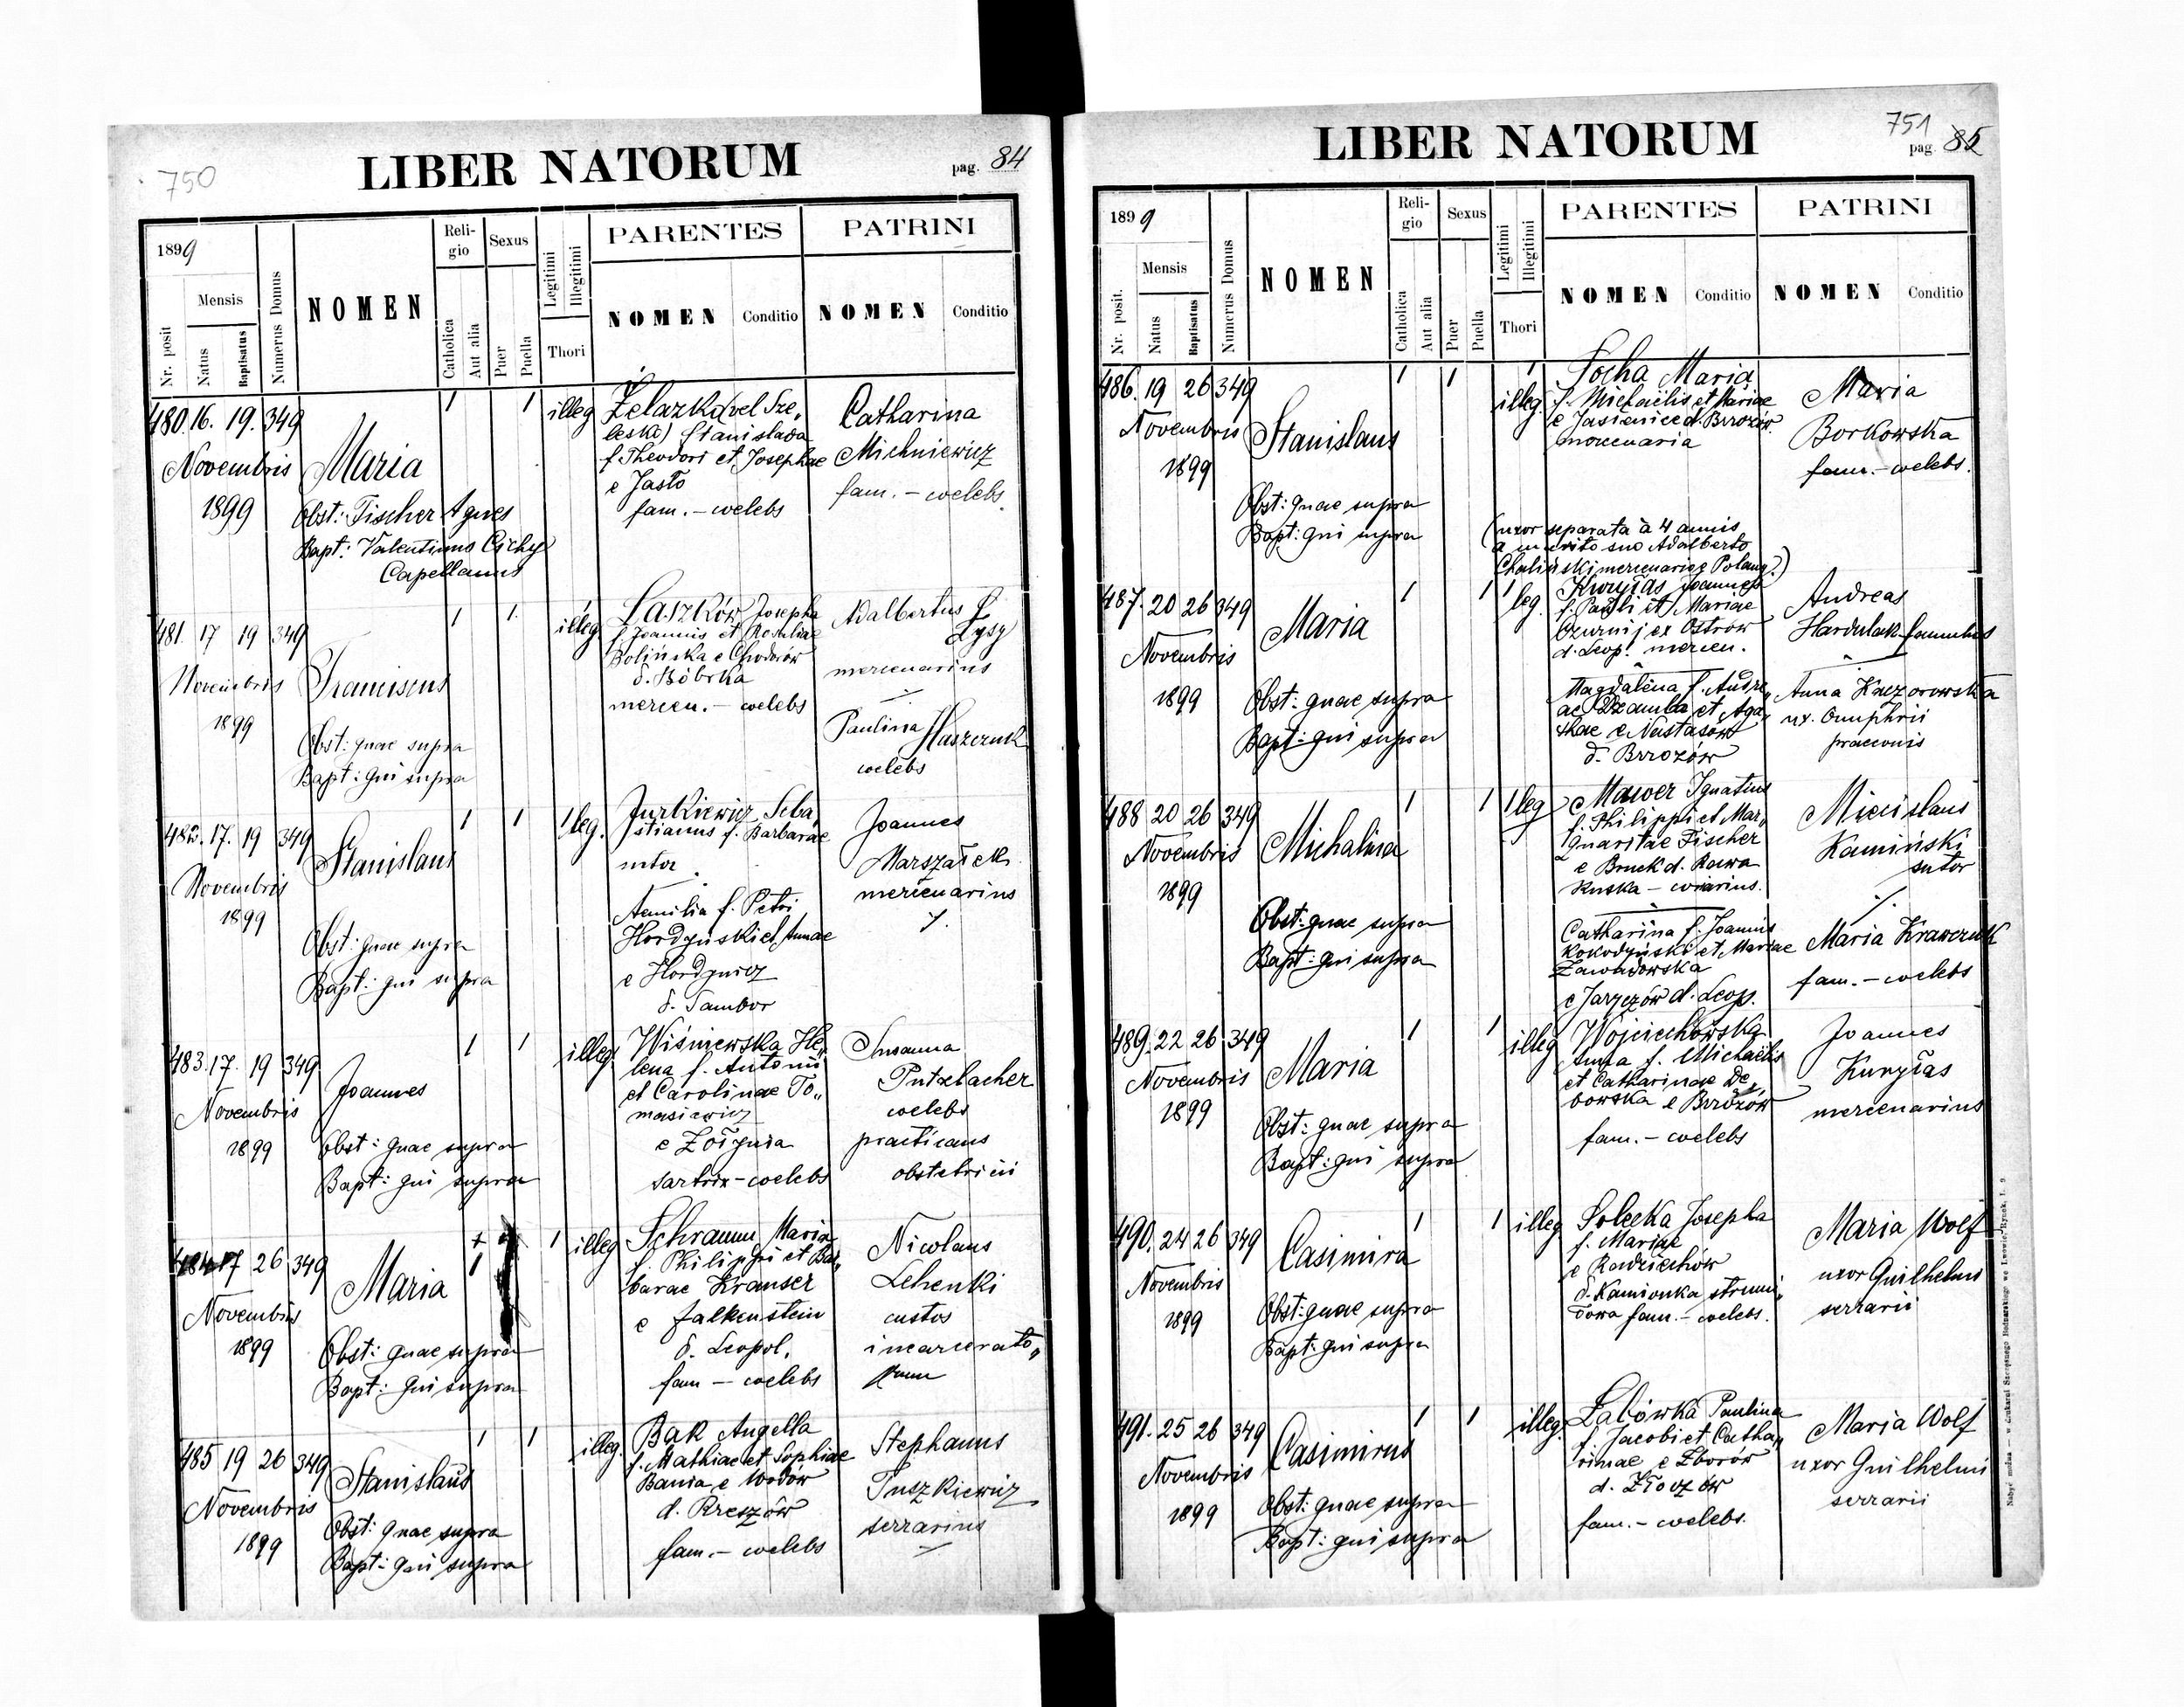 750
LIBER NATORUM
pag. 84
1899
Mensis
Nr. posit
Natus
Baptisatus
Numerus Domus
NOMEN
Reli-
gio
Catholica
Aut alia
Sexus
Puer
Puella
Legitimi
Illegitimi
Thori
PARENTES
NOMEN
Conditio
PATRINI
NOMEN
Conditio
480. 16. 19. 349
Novembris
1899
Maria
Obst: Fischer Agnes
Bapt: Valentinus Cichy
Capellanus
1 1 illeg
Żelazko (vel Sze„
leska) Stanislava
f. Theodori et Josephae
e Jasło
fam. – coelebs
Catharina
Michniewicz
fam. – coelebs.
481. 17 19 349
Novembris
1899
Franciscus
Obst: quae supra
Bapt: qui supra
1 1. illeg
Laszków Josepha
f. Joannis et Rosaliae
Bolińska e Chodorów
d. Bóbrka
mercen. – coelebs
Adalbertus
Łysy
mercenarius
Paulina Haszczuk
coelebs
482. 17. 19 349
Novembris
1899
Stanislaus
Obst: quae supra
Bapt: qui supra
1 1 1 leg.
Jurkiewicz Seba„
stianus f. Barbarae
sutor
Aemilia f. Petri
Hordyński et Annae
e Hordynia
d. Sambor
Joannes
Marszałek
mercenarius
483. 17. 19 349
Novembris
1899
Joannes
Obst: quae supra
Bapt: qui supra
1 1 illeg.
Wiśniewska He„
lena f. Antonii
et Carolinae To„
masiewicz
e Żołynia
sartrix – coelebs
Susanna
Putzlacher
coelebs
practicans
obstetricii
484. 17 26 349
Novembris
1899
Maria
Obst: quae supra
Bapt: qui supra
1 1 illeg
Schramm Maria
f. Philippi et Bar„
barae Krauser
e Falkenstein
d. Leopol.
fam – coelebs
Nicolaus
Lehenki
custos
incarcerato„
rum
485 19 26 349
Novembris
1899
Stanislaus
Obst: quae supra
Bapt: qui supra
1 1 illeg.
Bak Angella
f. Mathiae et Sophiae
Bania e Wodów
d. Rzeszów
fam. – coelebs
Stephanus
Puszkiewicz
serrarius
751
LIBER NATORUM
pag. 85
1899
Mensis
Nr. posit.
Natus
Baptisatus
Numerus Domus
NOMEN
Reli-
gio
Catholica
Aut alia
Sexus
Puer
Puella
Legitimi
Illegitimi
Thori
PARENTES
NOMEN
Conditio
PATRINI
NOMEN
Conditio
486. 19 26 349
Novembris
1899
Stanislaus
Obst: quae supra
Bapt: qui supra
1 1 illeg.
Socha Maria
f. Michaëlis et Mariae
e Jasienice d. Brzozów
mercenaria
(uxor separata à 4 annis
a marito suo Adalberto
Chaliński mercenario e Polany)
Maria
Borkowska
fam. – coelebs.
487. 20 26 349
Novembris
1899
Maria
Obst: quae supra
Bapt: qui supra
1 1 1 leg.
Kuryłas Joannes
f. Pauli et Mariae
Czurnij ex Ostrow
d. Leop. mercen.
Magdalena f. Andre„
ae Dzamba et Aga„
thae e Nastasów
d. Brzozów
Andreas
Hardulak famulus
Anna Kaczorowska
ux. Onuphrii
praeconis
488 20 26 349
Novembris
1899
Michalina
Obst: quae supra
Bapt: qui supra
1 1 1 leg
Mawer Ignatius
f. Philippi et Mar„
garitae Fischer
e Bruck d. Rawa
Ruska – coriarius.
Catharina f. Joannis
Kokodyński et Mariae
Zawadowska
e Jaryczów d. Leop.
Miecislaus
Kamiński
sutor
Maria Krawczuk
fam. – coelebs
489. 22 26 349
Novembris
1899
Maria
Obst: quae supra
Bapt: qui supra
1 1 illeg
Wojciechowska
Anna f. Michaëlis
et Catharinae De„
bowska e Brzozów
fam. – coelebs
Joannes
Kuryłas
mercenarius
490. 24 26 349
Novembris
1899
Casimira
Obst: quae supra
Bapt: qui supra
1 1 illeg
Solecka Josepha
f. Mariae
e Radziechów
d. Kamionka strumi„
łowa fam. – coelebs.
Maria Wolf
uxor Guilhelmi
serrarii
491. 25 26 349
Novembris
1899
Casimirus
Obst: quae supra
Bapt: qui supra
1 1 illeg.
Labówka Paulina
f. Jacobi et Catha„
rinae e Zborów
d. Złoczów
fam. – coelebs.
Maria Wolf
uxor Guilhelmi
serrarii